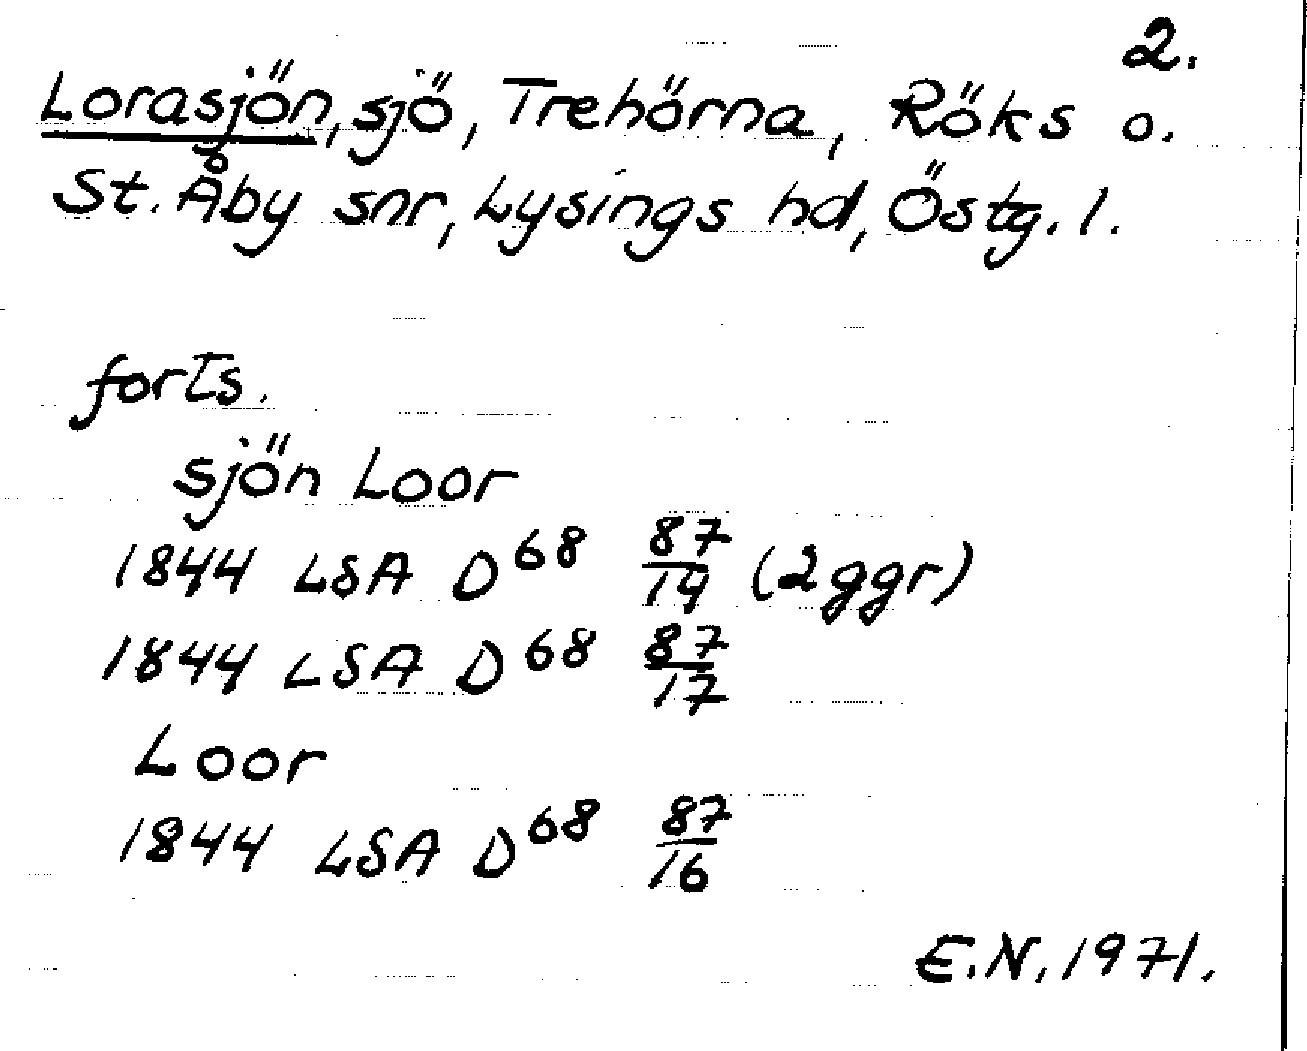 2.
Lorasjön, sjö, Trehörna, Röks o.
St. Åby snr, Lysings hd, Östg. l.
forts.
sjön Loor
1844 LSA D⁶⁸ 87/14 (2 ggr)
1844 LSA D⁶⁸ 87/17
Loor
1844 LSA D⁶⁸ 87/16
E.N. 1971.